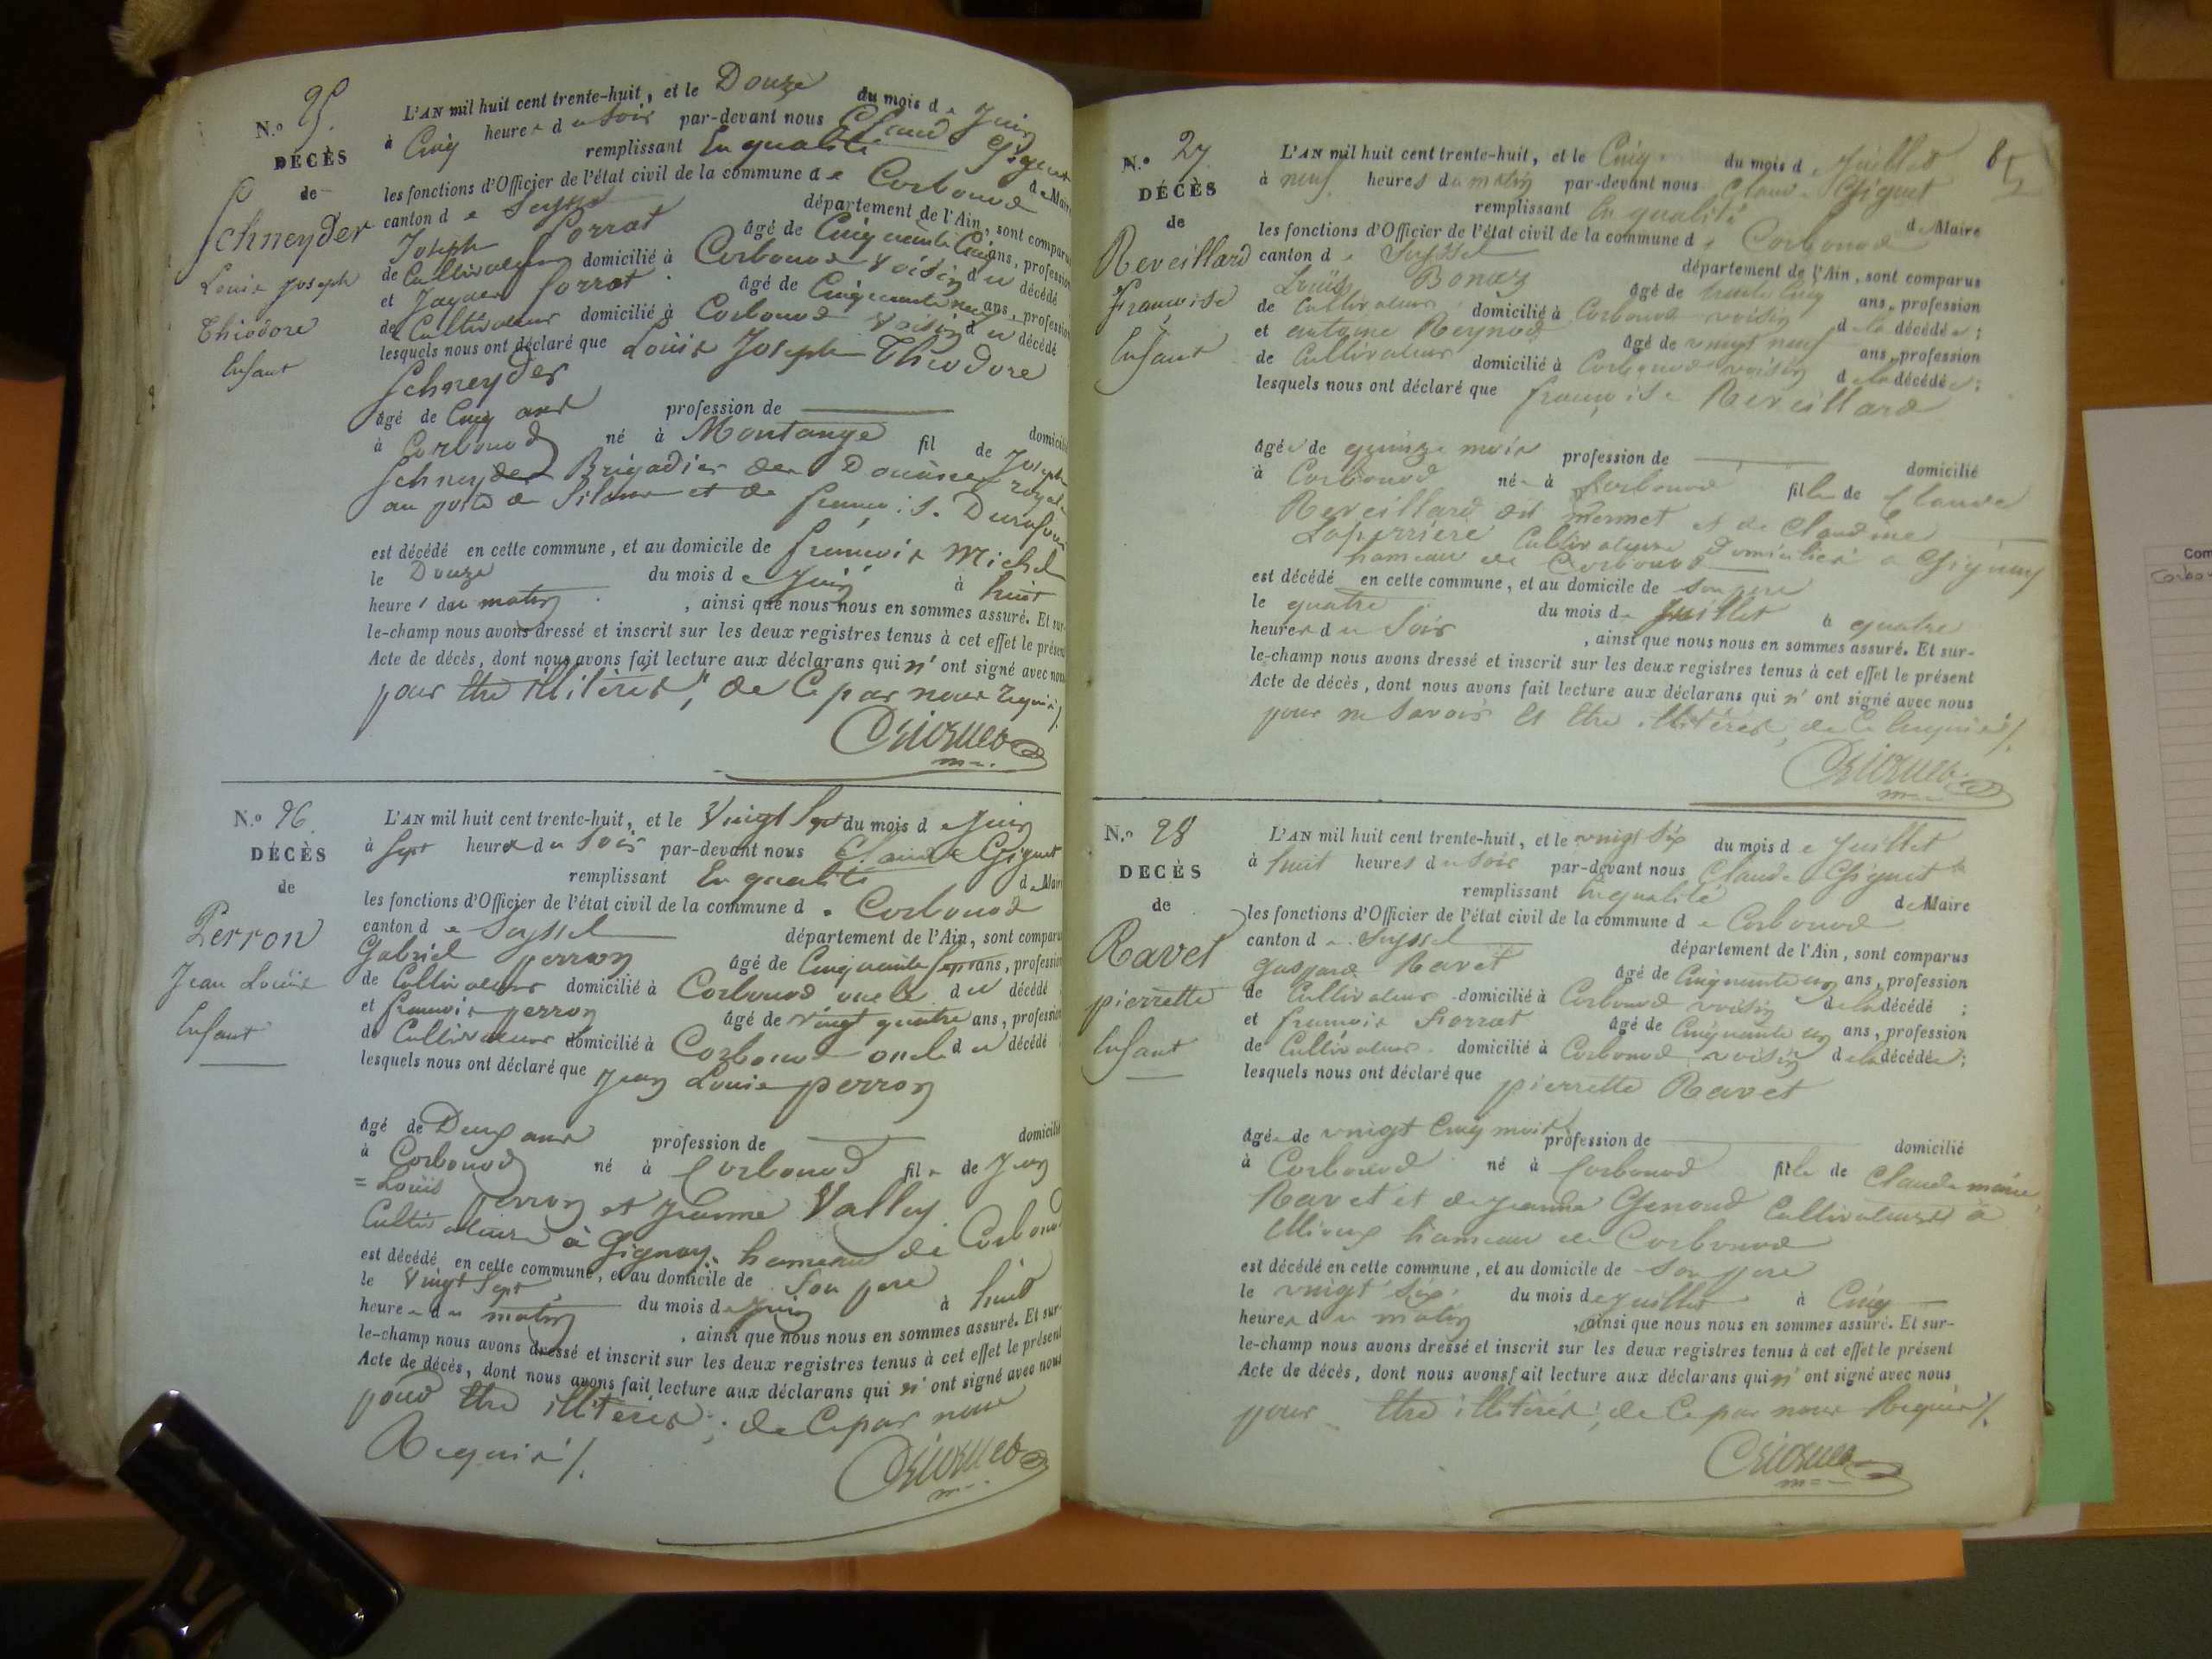 N.o 25.
DÉCÈS
de
Schneyder
Louis Joseph
Théodore
Enfant
L'AN mil huit cent trente-huit, et le Douze du mois de Juin
à Cinq heures du Soir par-devant nous Claude Giguet
remplissant En qualité de Maire
les fonctions d'Officier de l'état civil de la commune de Corbonod
canton de Seyssel département de l'Ain, sont comparus
Joseph Porrat âgé de Cinquante Cinq ans, profession
de Cultivateur domicilié à Corbonod voisin du décédé
et Jaques Porrat âgé de Cinquante neuf ans, profession
de Cultivateur domicilié à Corbonod voisin du décédé
lesquels nous ont déclaré que Louis Joseph Théodore
Schneyder
âgé de Cinq ans profession de domicilié
à Corbonod né à Montange fil de Joseph
Schneyder Brigadier des Douanes royales
au poste de Silans et de
est décédé en cette commune, et au domicile de francois Michel
le Douze du mois de Juin à huit
heures du matin, ainsi que nous nous en sommes assuré. Et sur-
le-champ nous avons dressé et inscrit sur les deux registres tenus à cet effet le présent
Acte de décès, dont nous avons fait lecture aux déclarans qui n'ont signé avec nous
pour être illitérés, de Ce par nous requis ./.
Giguet
N.o 26.
DÉCÈS
de
Perron
Jean Louis
Enfant
L'AN mil huit cent trente-huit, et le Vingt Sept du mois de Juin
à Sept heures du Soir par-devant nous Claude Giguet
remplissant En qualité de Maire
les fonctions d'Officier de l'état civil de la commune de Corbonod
canton de Seyssel département de l'Ain, sont comparus
Gabriel perron âgé de Cinquante Sept ans, profession
de Cultivateur domicilié à Corbonod oncle du décédé
et francois perron âgé de vingt quatre ans, profession
de Cultivateur domicilié à Corbonod oncle du décédé
lesquels nous ont déclaré que Jean Louis perron
âgé de Deux ans profession de domicilié
à Corbonod né à Corbonod fils de Jean
= Louis perron et Jeanne Valley
Cultivateurs à Gignay hameau de Corbonod
est décédé en cette commune, et au domicile de Son pere
le Vingt Sept du mois de Juin à huit
heures du matin, ainsi que nous nous en sommes assuré. Et sur-
le-champ nous avons dressé et inscrit sur les deux registres tenus à cet effet le présent
Acte de décès, dont nous avons fait lecture aux déclarans qui n'ont signé avec nous
pour être illitérés; de Ce par nous
Requis ./.
Giguet
N.o 27
DÉCÈS
de
Reveillard
francoise
Enfant
L'AN mil huit cent trente-huit, et le Cinq du mois de Juillet
à neuf heures du matin par-devant nous Claude Giguet
remplissant En qualité de Maire
les fonctions d'Officier de l'état civil de la commune de Corbonod
canton de Seyssel département de l'Ain, sont comparus
Louis Bonaz âgé de trente Cinq ans, profession
de Cultivateur domicilié à Corbonod voisin de la décédée;
et antoine Reynod âgé de vingt neuf ans, profession
de Cultivateur domicilié à Corbonod voisin de la décédée;
lesquels nous ont déclaré que francoise Reveillard
âgée de quinze mois profession de domicilié
à Corbonod née à Corbonod fille de Claude
Reveillard dit mermet et de Claudine
Laperriere Cultivateurs Domiciliés à Gignay
hameau de Corbonod
est décédé en cette commune, et au domicile de Son pere
le quatre du mois de Juillet à quatre
heures du Soir, ainsi que nous nous en sommes assuré. Et sur-
le-champ nous avons dressé et inscrit sur les deux registres tenus à cet effet le présent
Acte de décès, dont nous avons fait lecture aux déclarans qui n'ont signé avec nous
pour ne Savoir Et Etre illitérés, de Ce Enquis ./.
Giguet
N.o 28
DÉCÈS
de
Ravet
pierrette
Enfant
L'AN mil huit cent trente-huit, et le vingt Six du mois de Juillet
à huit heures du Soir par-devant nous Claude Giguet
remplissant En qualité de Maire
les fonctions d'Officier de l'état civil de la commune de Corbonod
canton de Seyssel département de l'Ain, sont comparus
Gaspard Ravet âgé de Cinquante un ans, profession
de Cultivateur domicilié à Corbonod voisin de la décédé;
et francois Porrat âgé de Cinquante un ans, profession
de Cultivateur domicilié à Corbonod voisin de la décédée;
lesquels nous ont déclaré que pierrette Ravet
âgée de vingt Cinq mois profession de domicilié
à Corbonod né à Corbonod fille de Claude marie
Ravet et de Jeanne Genoud Cultivateurs à
hameau de Corbonod
est décédé en cette commune, et au domicile de Son pere
le vingt Six du mois de Juillet à Cinq
heures du matin, ainsi que nous nous en sommes assuré. Et sur-
le-champ nous avons dressé et inscrit sur les deux registres tenus à cet effet le présent
Acte de décès, dont nous avons fait lecture aux déclarans qui n'ont signé avec nous
pour Etre illitérés, de Ce par nous Requis ./.
Giguet
Com